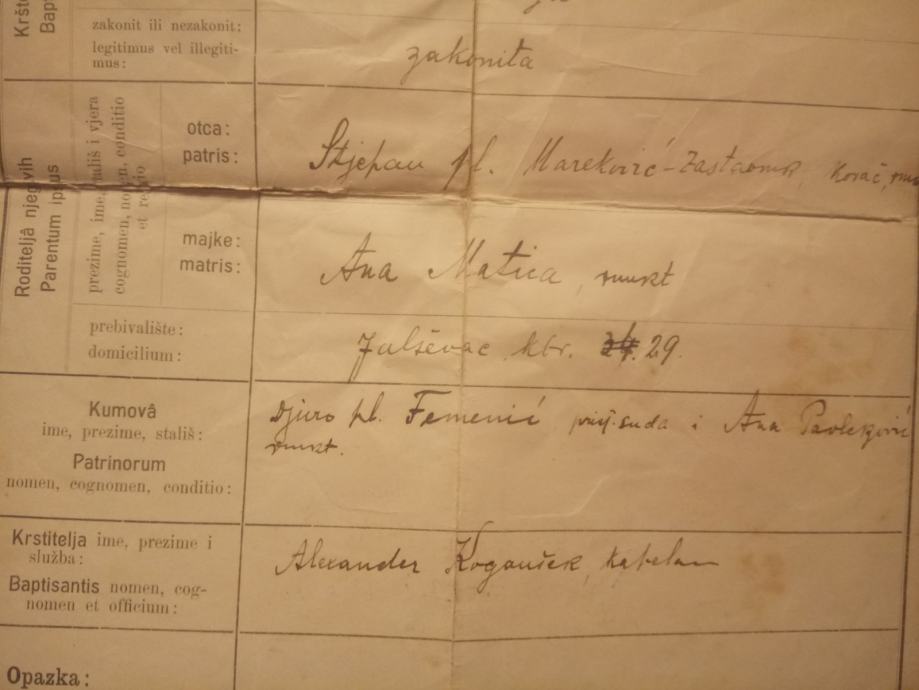 Kršte
Bapt
zakonit ili nezakonit:
legitimus vel illegiti-
mus:
zakonita
Roditeljâ njegovih
Parentum ipsius
prezime, ime, stališ i vjera
cognomen, nomen, conditio
et religio
otca:
patris:
Stjepan pl. Mareković-Zastavnik, kovač,
majke:
matris:
Ana Matica, rmkt
prebivalište:
domicilium:
Jalševac kbr. 29.
Kumovâ
ime, prezime, stališ:
Patrinorum
nomen, cognomen, conditio:
Djuro pl. Femenić suda i Ana Pavleković
rmkt.
Krstitelja ime, prezime i
služba:
Baptisantis nomen, cog-
nomen et officium:
Alexander kapelan
Opazka: